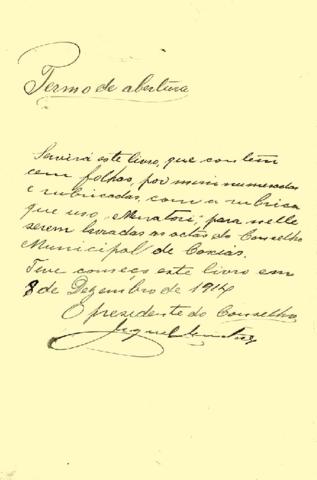 Termo de abertura
Servirá este livro, que contém
cem folhas, por mim numeradas
e rubricadas, com a rubrica
que uso, "Muratori", para nelle
serem lavradas as actas do Conselho
Municipal de Caxias.
Teve começo este livro em
8 de Dezembro de 1914
O presidente do Conselho,